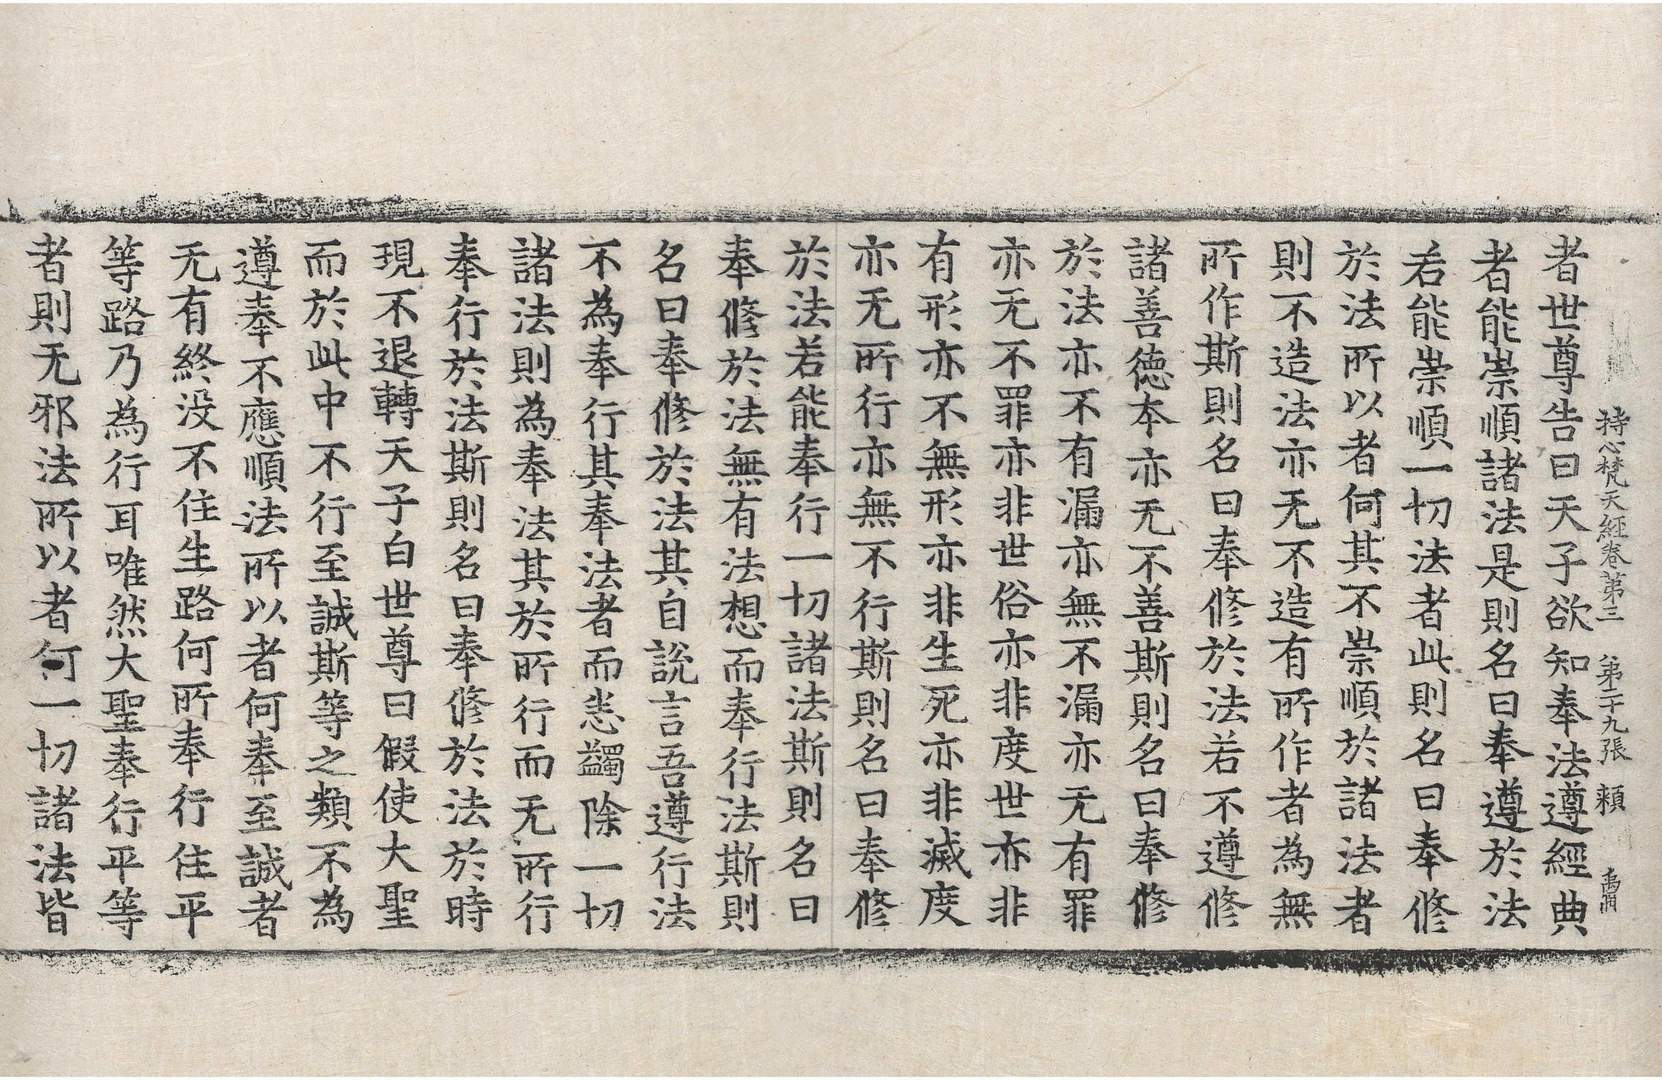 持心梵天經卷第三 第二十九張 賴
者世尊告曰天子欲知奉法遵經典
者能崇順諸法是則名曰奉遵於法
若能崇順一切法者此則名曰奉修
於法所以者何其不崇順於諸法者
則不造法亦无不造有所作者為無
所作斯則名曰奉修於法若不遵修
諸善德本亦无不善斯則名曰奉修
於法亦不有漏亦無不漏亦无有罪
亦无不罪亦非世俗亦非度世亦非
有形亦不無形亦非生死亦非滅度
亦无所行亦無不行斯則名曰奉修
於法若能奉行一切諸法斯則名曰
奉修於法無有法想而奉行法斯則
名曰奉修於法其自說言吾遵行法
不為奉行其奉法者而悉蠲除一切
諸法則為奉法其於所行而无所行
奉行於法斯則名曰奉修於法於時
現不退轉天子白世尊曰假使大聖
而於此中不行至誠斯等之類不為
遵奉不應順法所以者何奉至誠者
无有終没不住生路何所奉行住平
等路乃為行耳唯然大聖奉行平等
者則无邪法所以者何一切諸法皆